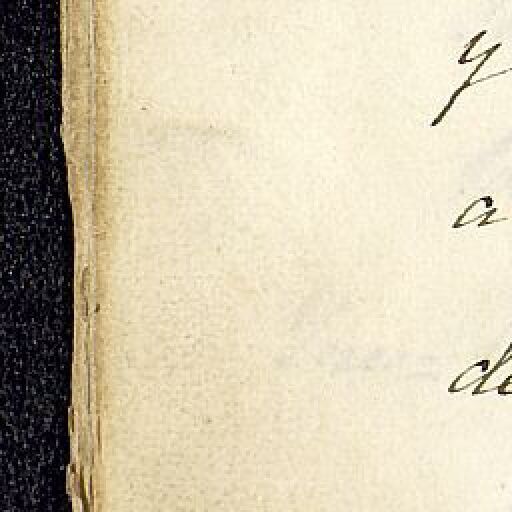 y
a
de